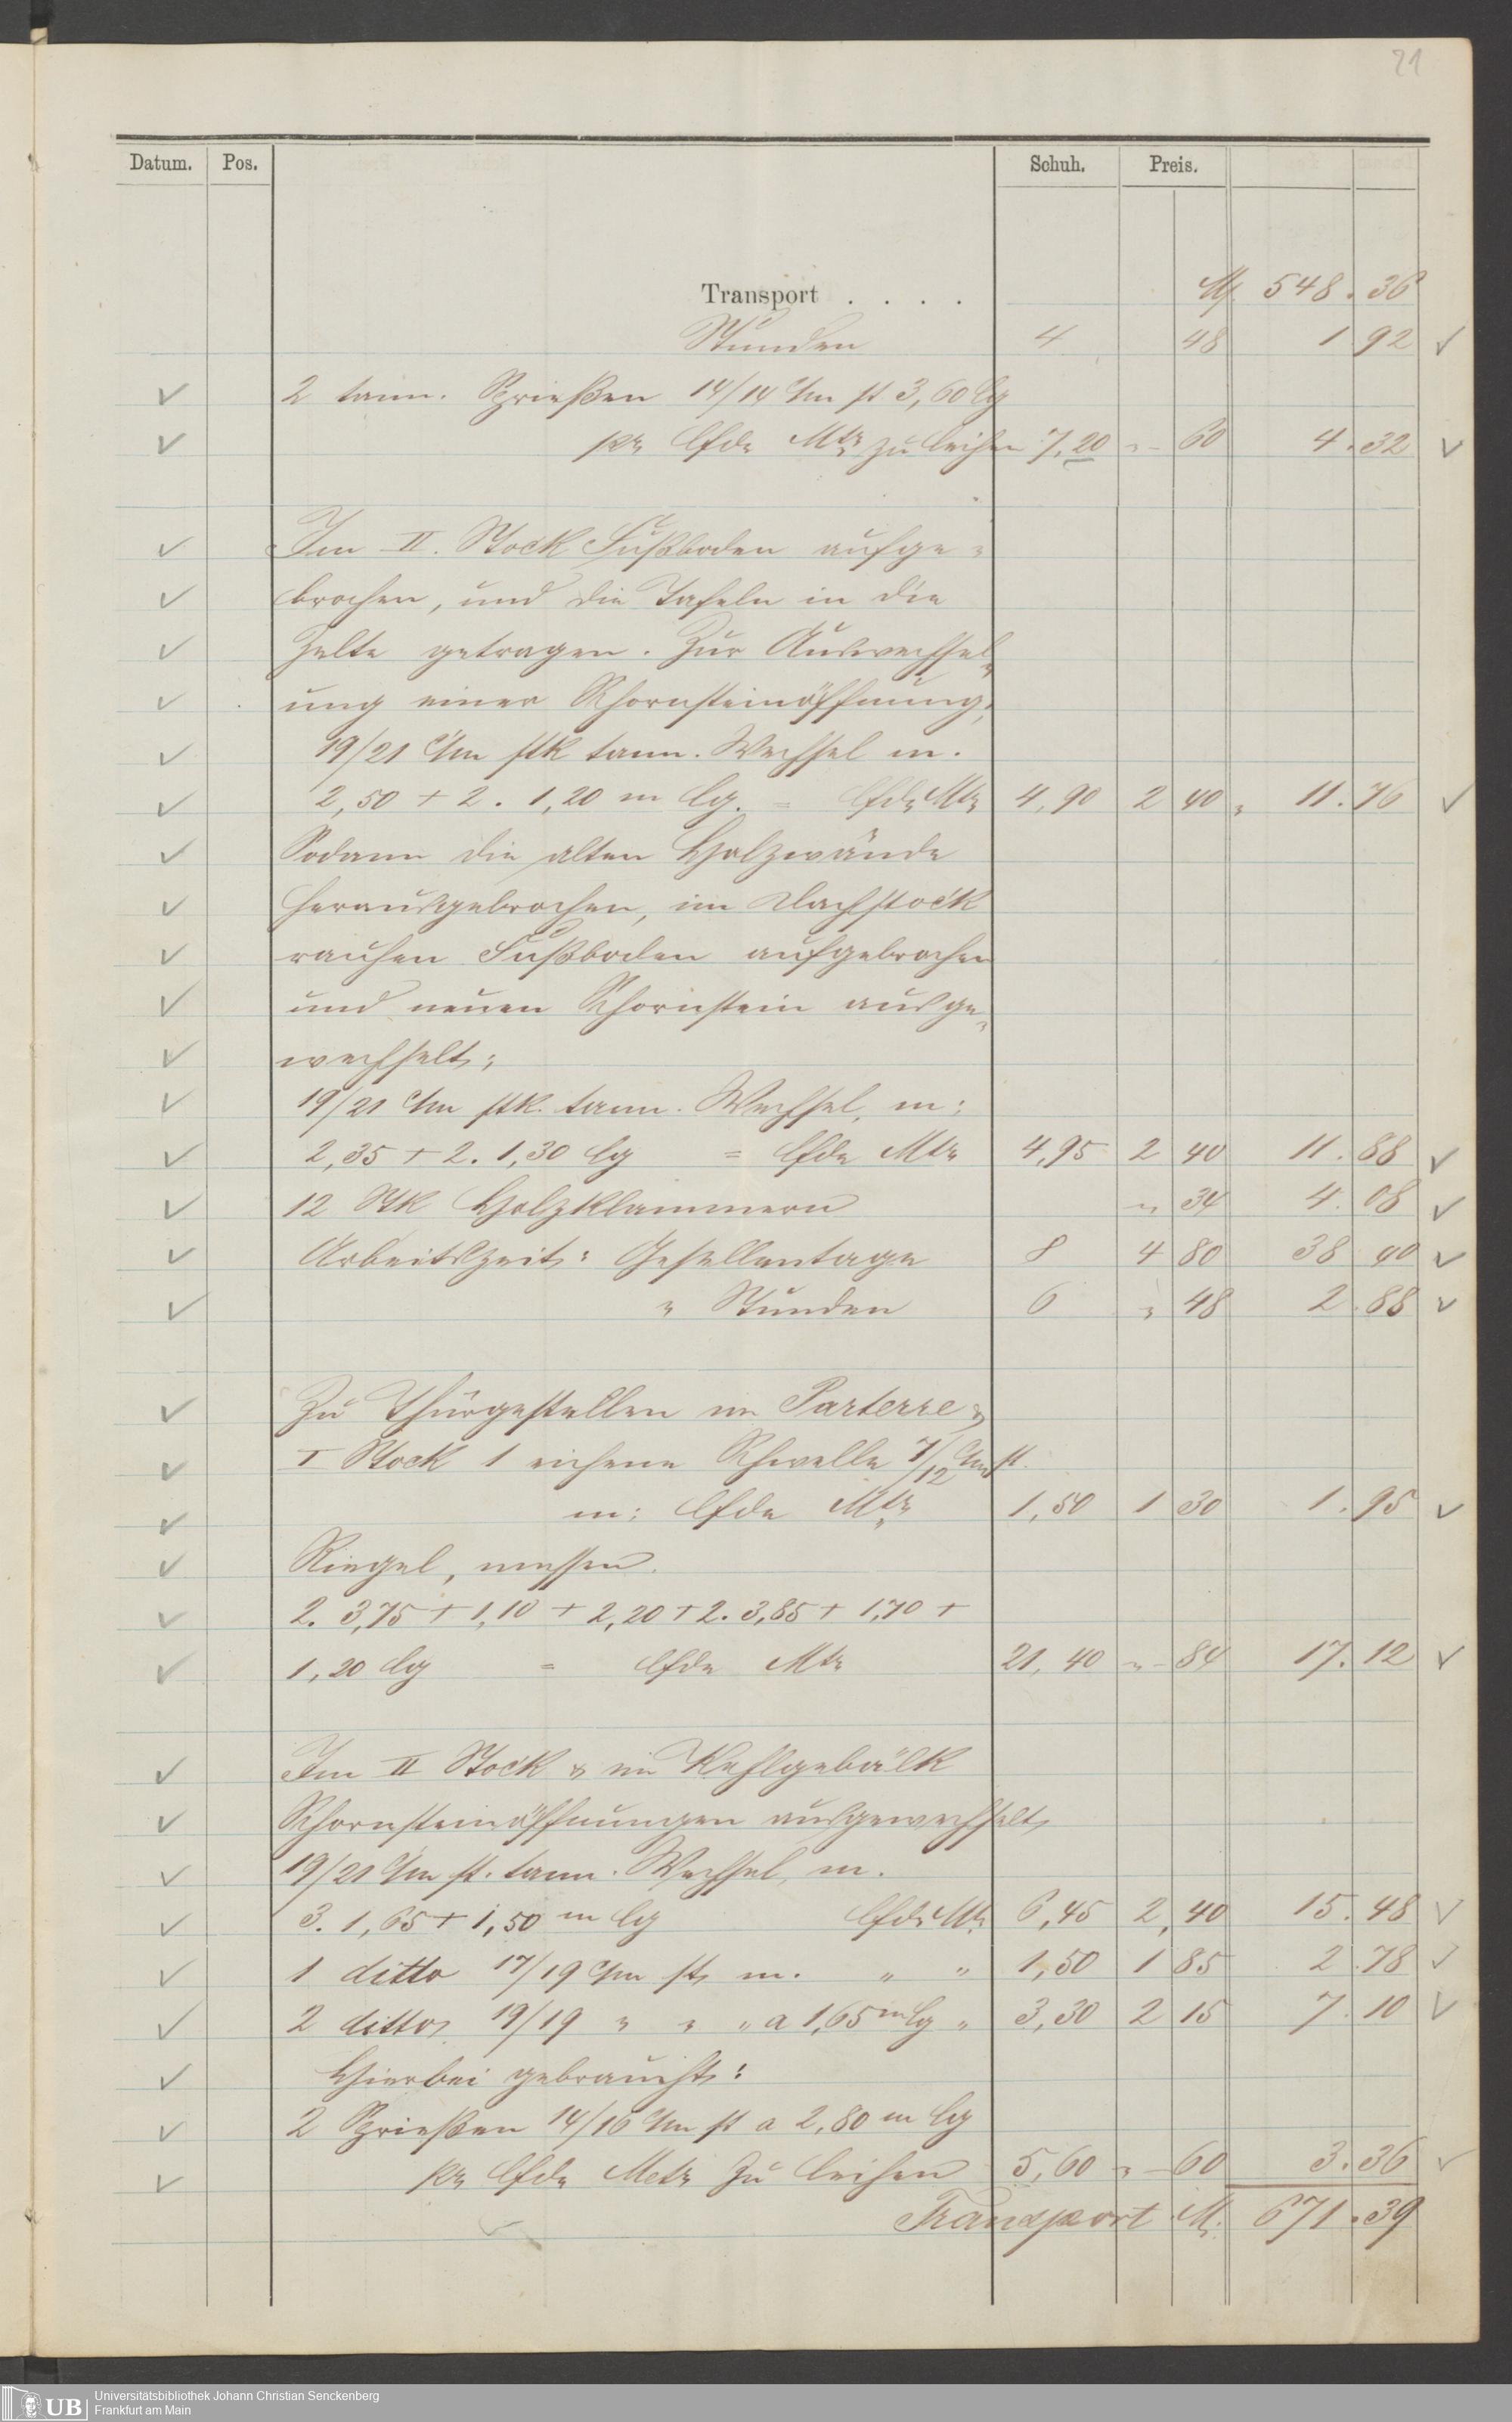 21
Datum. Pos. Schuh. Preis.
Transport . . . . M 548 . 36
Stunden 4 48 1 92 ✓
✓ 2 tann. Sprießen 14/14 c/m st 3,60 lg
✓ pr lfde Mtr zu leihen 7,20 " – 60 4 . 32 ✓
✓ Im II. Stock Fußboden aufge-
✓ brochen, und die Tafeln in die
✓ getragen. Zur Auswechsel-
✓ ung einer Schornsteinöffnung,
✓ 19/21 c/m stk tann. Wechsel m.
✓ 2,50 + 2 . 1,20 m lg. = lfde Mtr 4,90 2 40 " 11 . 76 ✓
✓ Sodann die alten Holzwände
✓ herausgebrochen, im Dachstock
✓ rauhen Fußboden aufgebrochen
✓ und neuen Schornstein ausge-
✓ wechselt;
✓ 19/21 c/m stk. tann. Wechsel, m:
✓ 2,35 + 2 . 1,30 lg = lfde Mtr 4,95 2 40 11 . 88 ✓
✓ 12 Stk Holzklammern " 34 4 . 08 ✓
✓ Arbeitszeit: Gesellentage 8 4 80 38 40 ✓
✓ " Stunden 6 " 48 2 . 88 ✓
✓ Zu Thürgestellen im Parterre &
✓ I Stock 1 eichene Schwelle 7/12 c/m st.
✓ m: lfde Mtr 1,50 1 30 1 . 95 ✓
✓ Riegel, messen.
✓ 2 . 3,75 + 1,10 + 2,20 + 2 . 3,85 + 1,70 +
✓ 1,20 lg = lfde Mtr 21,40 " – 80 17 . 12 ✓
✓ Im II Stock & im Kehlgebälk
✓ Schornsteinöffnungen ausgewechselt,
✓ 19/21 c/m st. tann. Wechsel, m.
✓ 3 . 1,65 + 1,50 m lg lfde Mtr 6,45 2, 40 15 . 48 ✓
✓ 1 ditto 17/19 c/m st, m. " " 1,50 1 85 2 . 78 ✓
✓ 2 ditto, 19/19 " " " a 1,65 m lg " 3,30 2 15 7 . 10 ✓
✓ Hierbei gebraucht:
✓ 2 Sprießen 14/16 c/m st a 2,80 m lg
✓ pr lfde Metr zu leihen 5,60 " – 60 3 . 36 ✓
Transport M. 671 . 39
UB
Universitätsbibliothek Johann Christian Senckenberg
Frankfurt am Main